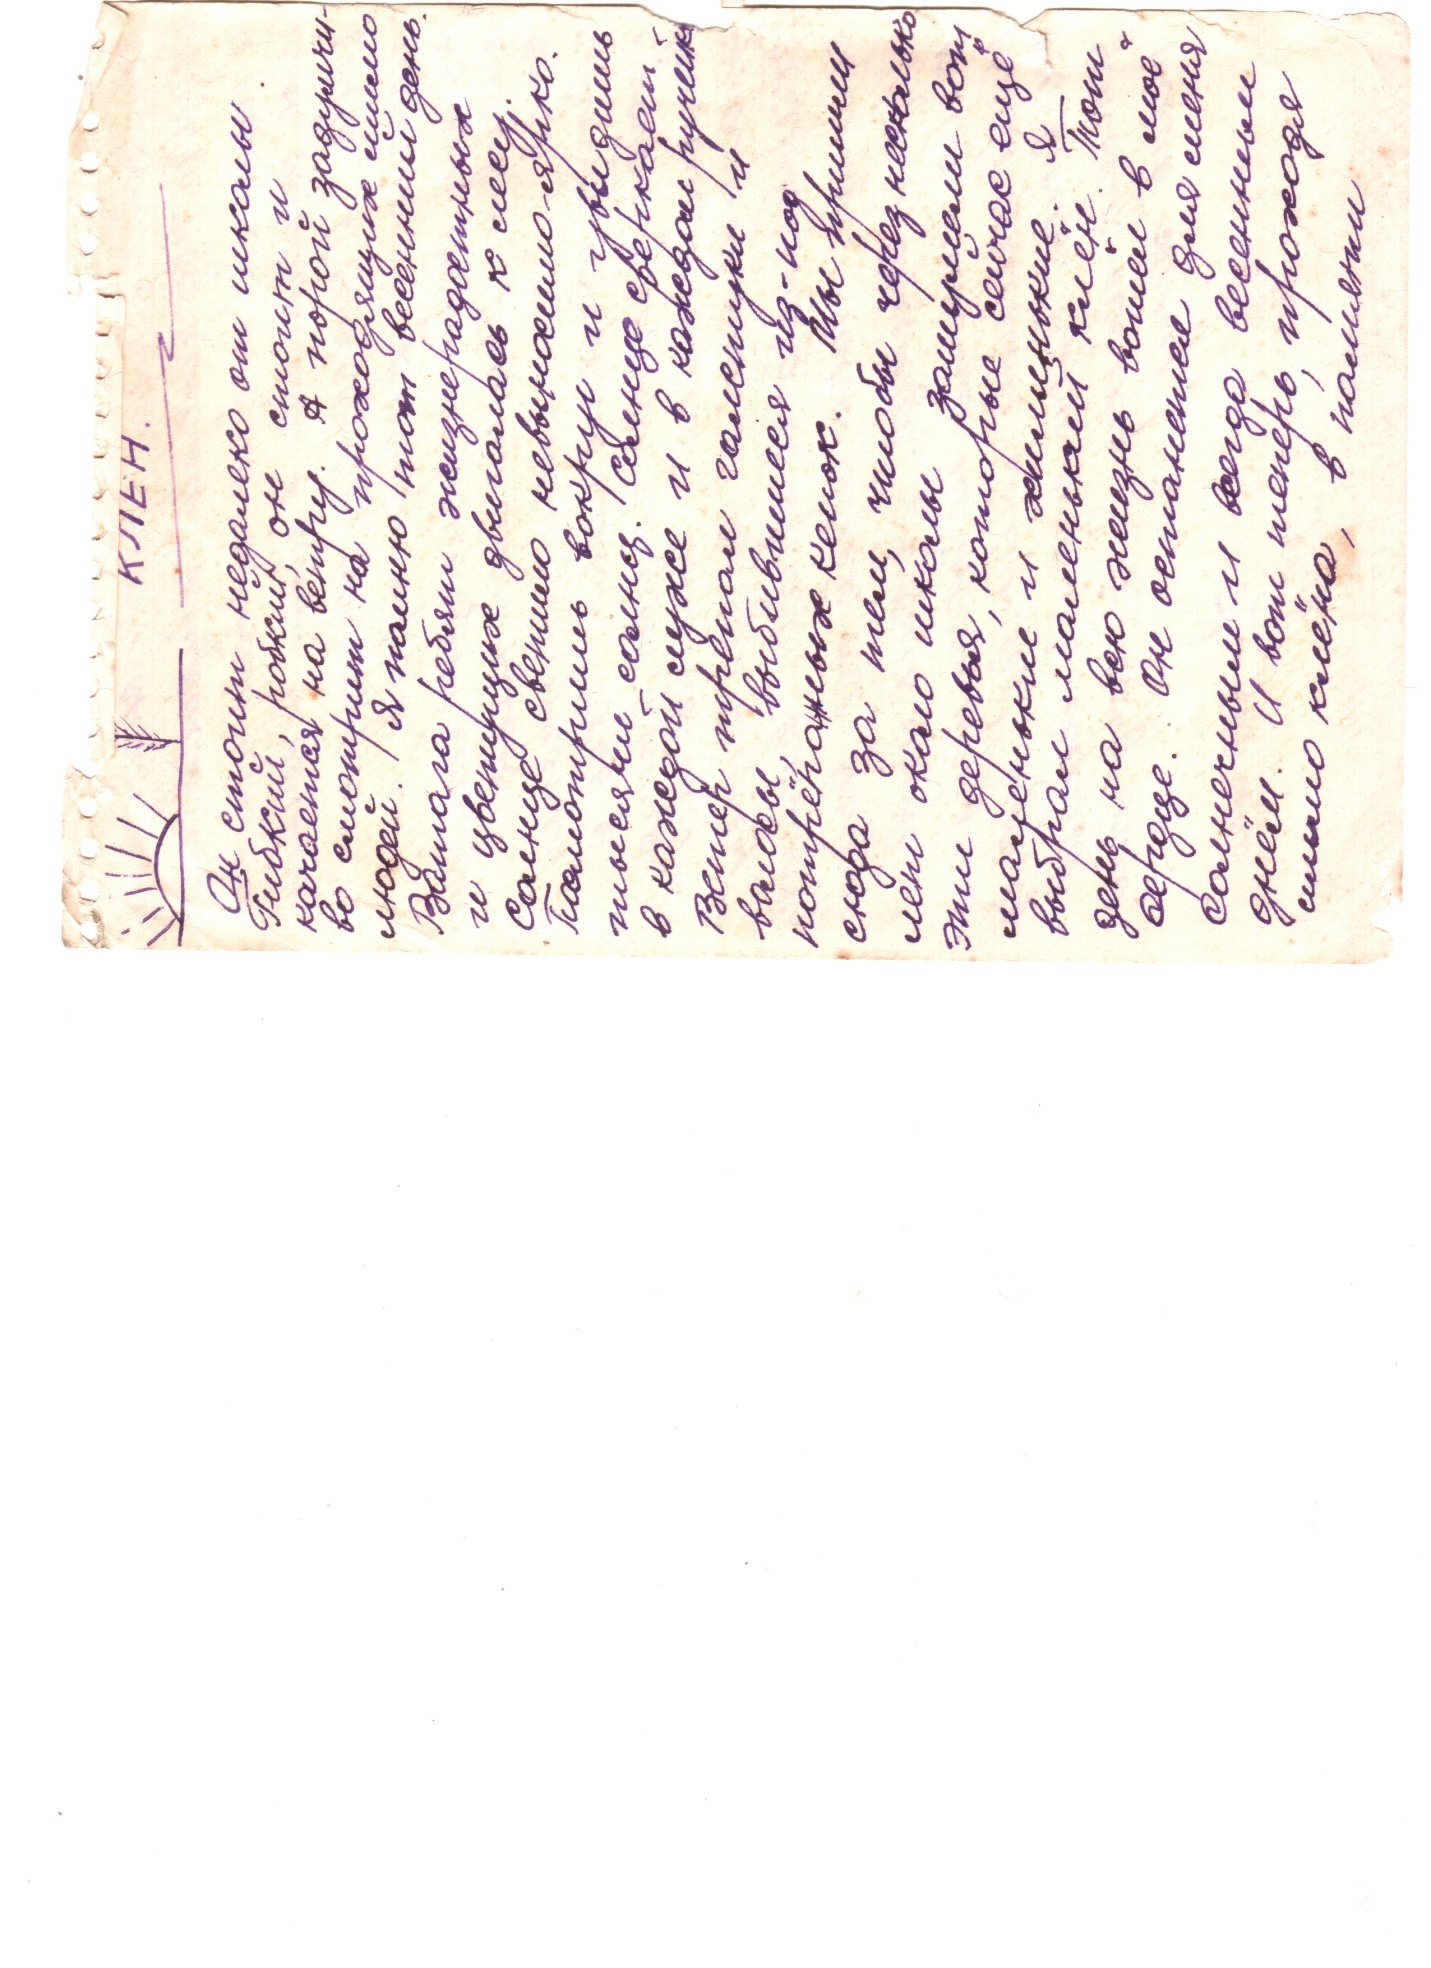 КЛЕН.
Он стоит недалеко от школы.
Гибкий, робкий, он стоит и
качается на ветру. А порой задумчи-
во смотрит на проходящих мимо
людей. Я помню тот весенний день.
Ватага ребят жизнерадостных
и цветущих двигалась к лесу.
Солнце светило невыносимо-ярко.
Посмотришь вокруг и увидишь
тысячи солнц. Солнце сверкает
в каждой луже и в каждом ручейке
Ветер трепал галстуки и
волосы, выбившиеся из-под
потрёпанных кепок. Мы пришли
сюда за тем, чтобы через несколько
лет около школы зашумели вот
эти деревья, которые сейчас ещё
маленькие и хиленькие. Я
выбрал маленький клён. Тот
день на всю жизнь вошёл в моё
сердце. Он останется для меня
солнечным и всегда весенним
днём. И вот теперь, проходя
мимо клёна, в памяти